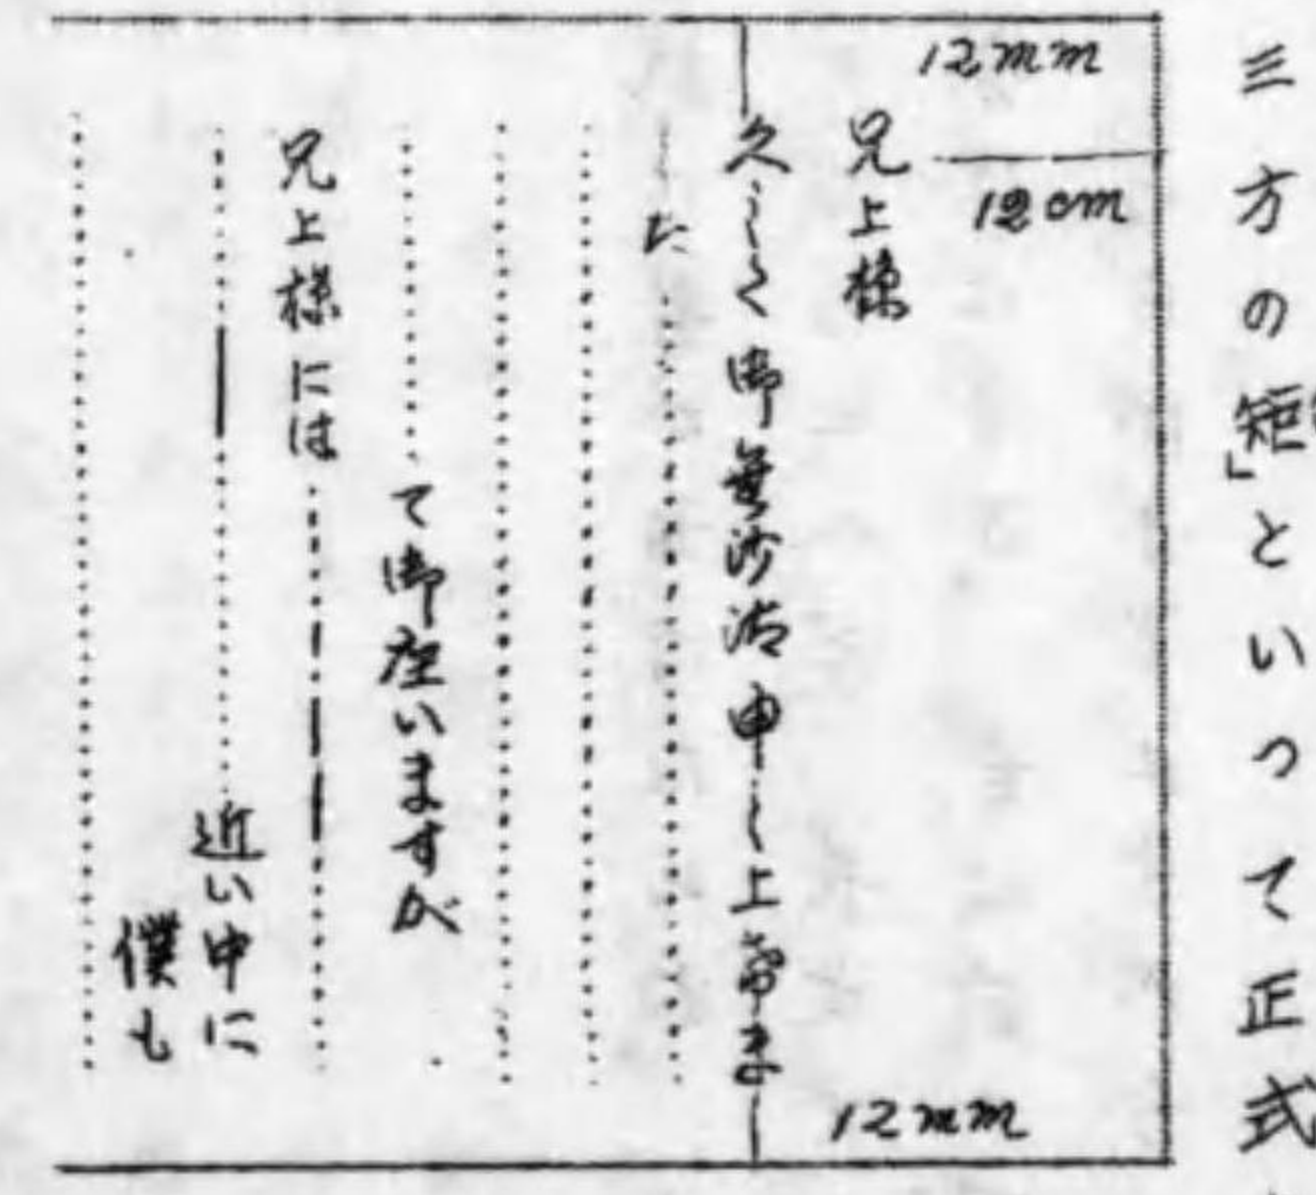 三方の矩」といって正式
12mm
12cm
兄上様
久しく御無沙汰申し上ました
て御座いますが
兄上様には
近い中に
僕も
12mm